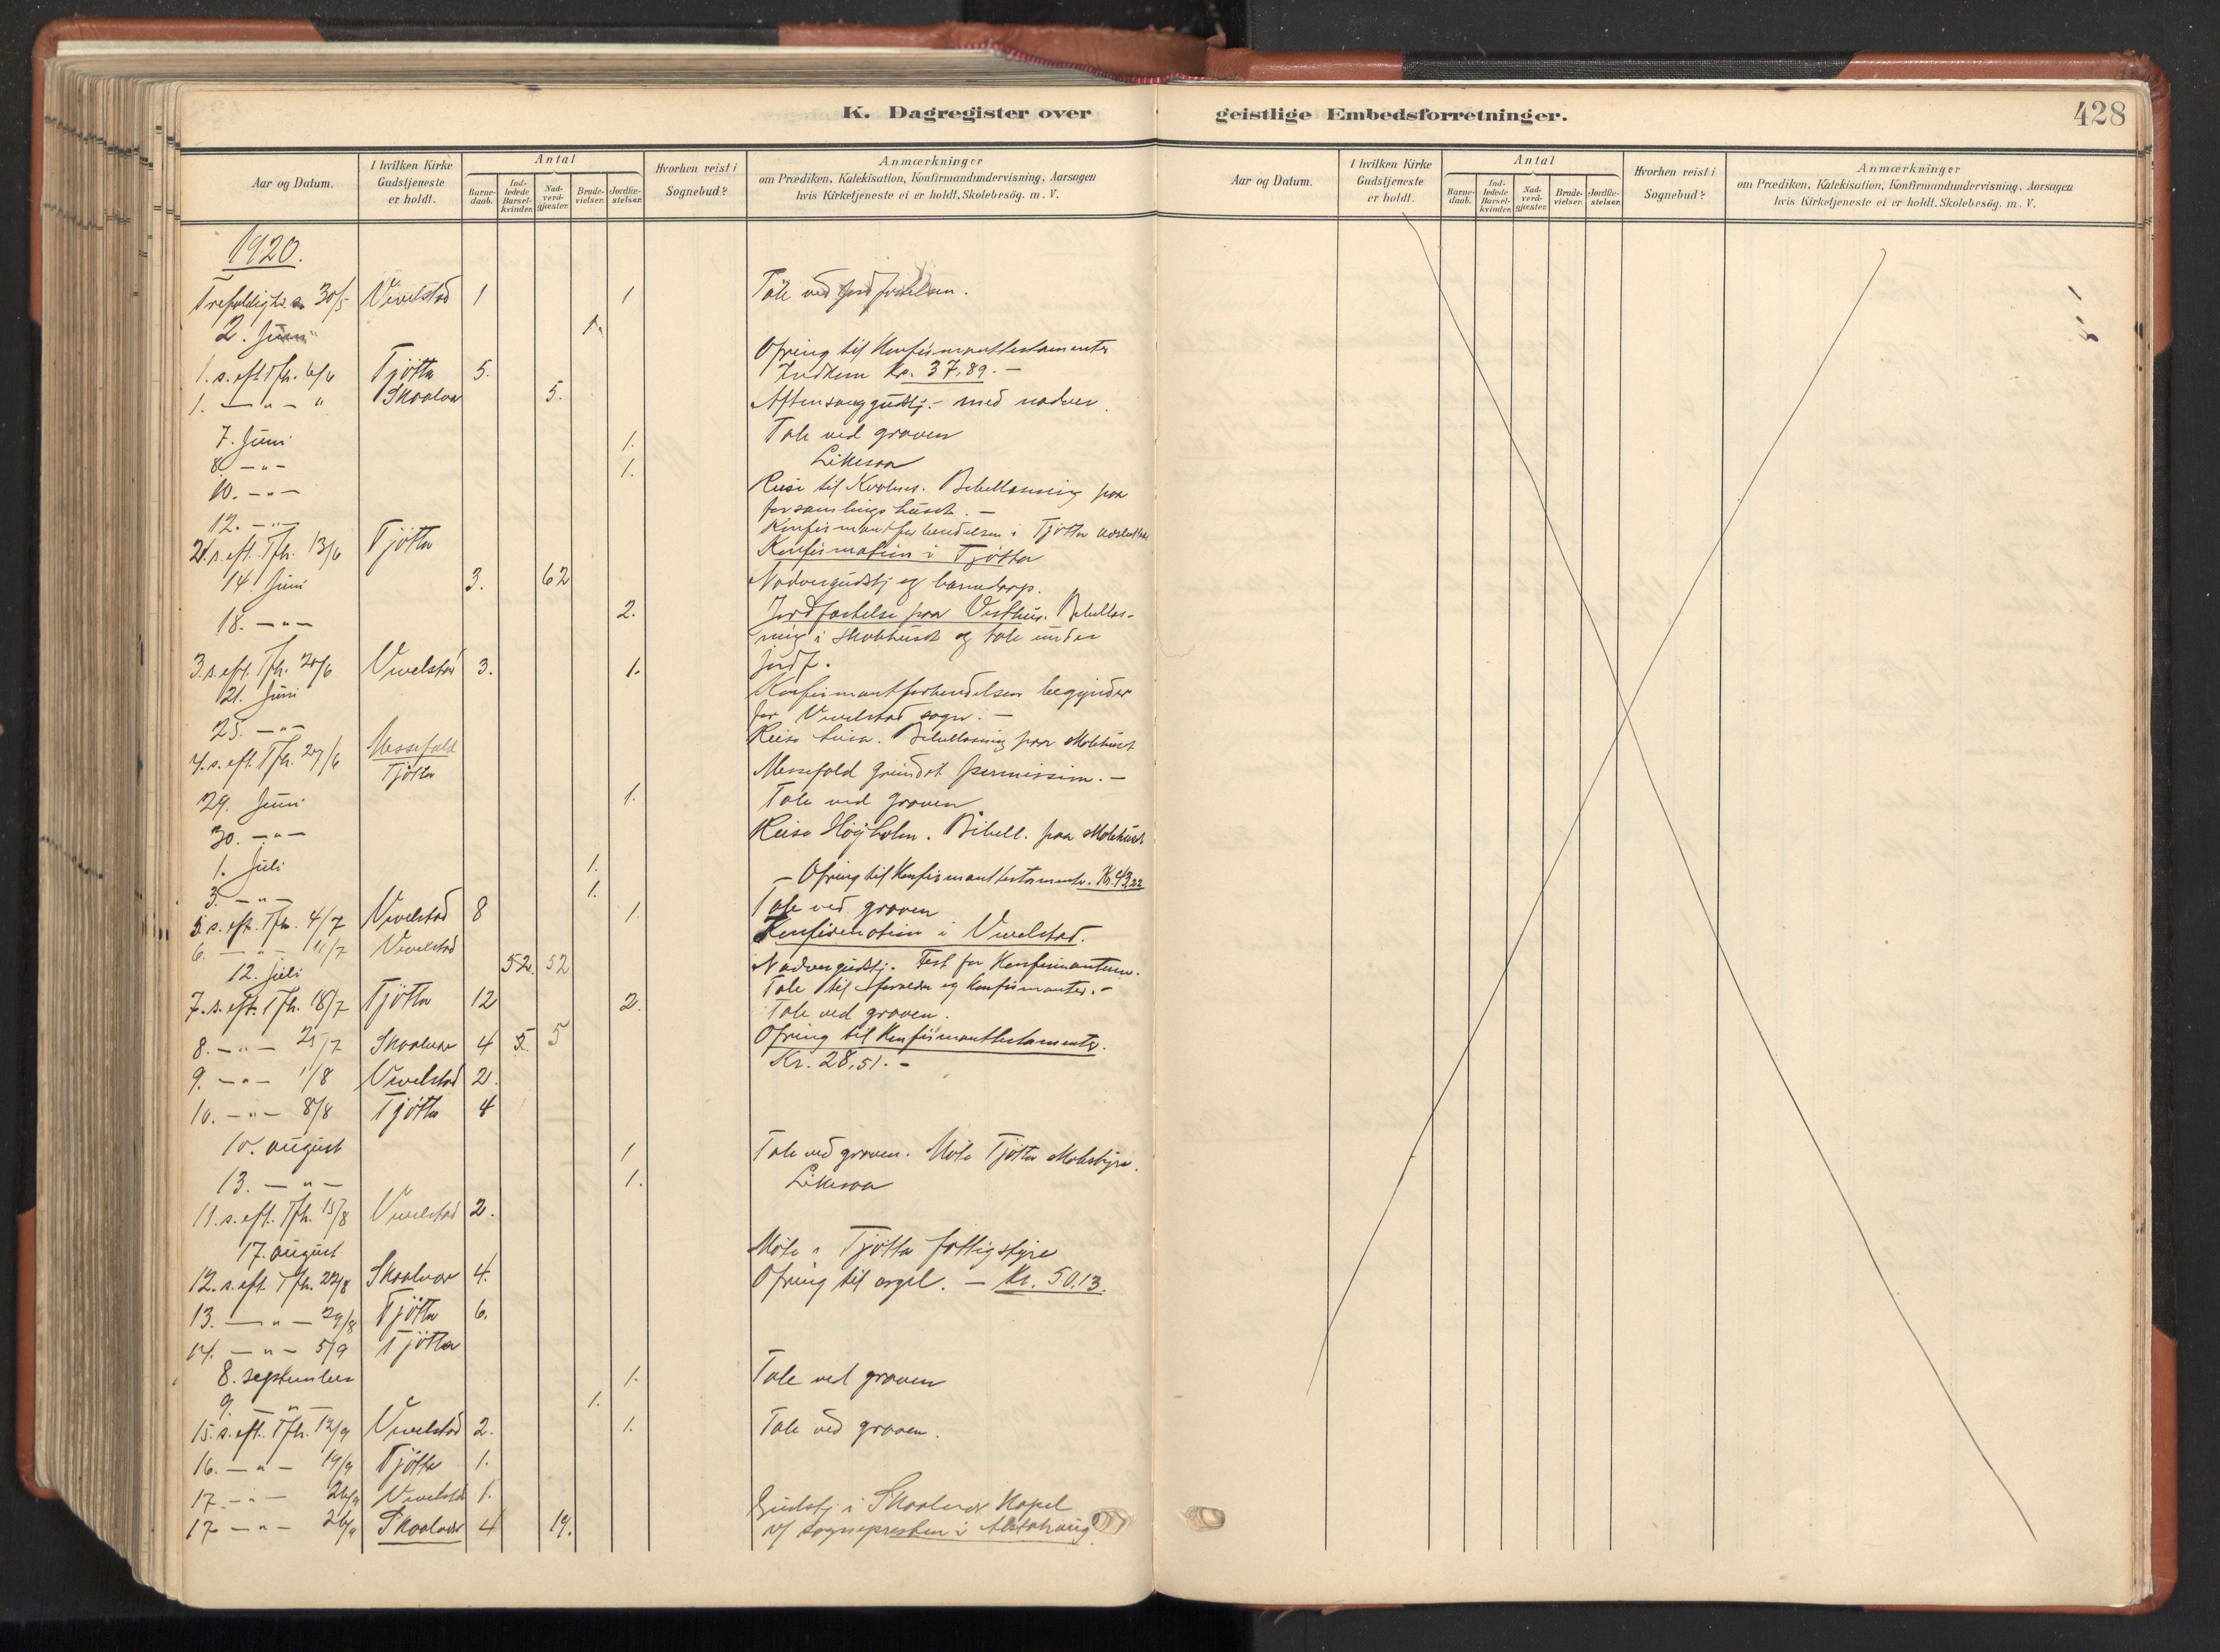 K. Dagregister over geistlige Embedsforretninger. 428
Aar og Datum. | I hvilken Kirke Gudstjeneste er holdt. | Antal | Barnedaab. | Indledede Barselkvinder. | Nadverdgjæster. | Brudevielser. | Jordfæstelser. | Hvorhen reist i Sognebud? | Anmærkninger om Prædiken, Katekisation, Konfirmandundervisning, Aarsagen hvis Kirketjeneste ei er holdt, Skolebesög. m. V.
1920.
30/5 Vivelstad 1 1 Tale ved jordfæstelsen.
2. Juni 1.
Ofring til Konfirmanttestamenter
1. s. eft. Tfh. 6/6 Tjötta 5. Indkom Kr. 37,89. —
1. — " — " Skaalvær 5. Aftensanggudstj. – med nadver.
7. Juni 1. Tale ved graven
8 — " — 1. Likesaa
10. — " — Reise til . Bibellæsning paa
forsamlingshuset. —
12. — " — Konfirmantforberedelsen i Tjötta
2. s. eft. Tfh. 13/6 Tjötta Konfirmation i Tjötta
14. Juni 3. 62 Nadvergudstj og barnedaap.
18. — " — 2. Jordfæstelse paa Visthus. Bibellæs-
ning i skolehuset og tale under
jordf.
3. s. eft. Tfh. 20/6 Vivelstad 3. 1.
21. Juni Konfirmantforberedelsen begynder
for Vivelstad sogn. —
25. — " — Reise . Bibellæsning paa skolehuset
4. s. eft. Tfh. 27/6 Messefald Tjötta Messefald grundet permission. —
29. Juni 1. Tale ved graven
30. — " — Reise Höjholm. Bibell. paa skolehuset
1. Juli 1.
3. — " — 1. – Ofring til Konfirmanttestamenter. Kr. 43.22
5. s. eft. Tfh. 4/7 Vivelstad 8 1. Tale ved graven
6. — " — 11/7 Vivelstad Konfirmation i Vivelstad.
12. Juli 52. 52 Nadvergudstj. Fest for Konfirmanterne.
Tale til foreldre og Konfirmanter. –
7. s. eft. Tfh. 18/7 Tjötta 12 2. Tale ved graven.
8. — " — 25/7 Skaalvær 4 5. 5 Ofring til Konfirmanttestamenter.
Kr. 28,51. –
9. — " — 1/8 Vivelstad 2.
10. — " — 8/8 Tjötta 4
10. august 1 Tale ved graven. Möte Tjötta skolestyre.
13. — " — 1. Likesaa
11. s. eft. Tfh. 15/8 Vivelstad 2.
17. august Möte i Tjötta fattigstyre
12. s. eft. Tfh. 22/8 Skaalvær 4. Ofring til orgel. — Kr. 50.13.
13. — " — 29/8 Tjötta 6.
14. — " — 5/9 Tjötta
8. september 1. Tale ved graven
9. — " — 1.
15. s. eft. Tfh. 12/9 Vivelstad 2. 1. Tale ved graven.
16. — " — 19/9 Tjötta 1.
17. — " — 26/9 Vivelstad 1.
17 — " — 26/9 Skaalvær 4 19. Gudstj i Skaalvær Kapel
v/ sognepresten i Alstahaug.
Aar og Datum. | I hvilken Kirke Gudstjeneste er holdt. | Antal | Barnedaab. | Indledede Barselkvinder. | Nadverdgjæster. | Brudevielser. | Jordfæstelser. | Hvorhen reist i Sognebud? | Anmærkninger om Prædiken, Katekisation, Konfirmandundervisning, Aarsagen hvis Kirketjeneste ei er holdt. Skolebesög. m. V.